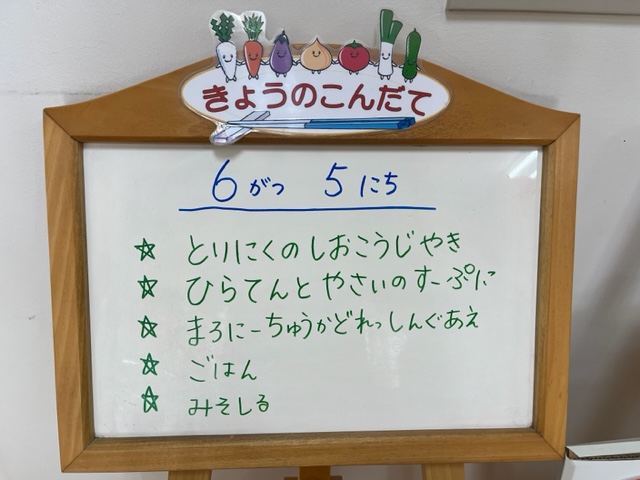 きょうのこんだて
6がつ 5にち
☆ とりにくのしおこうじやき
☆ ひらてんとやさいのすーぷに
☆ まろにーちゅうかどれっしんぐあえ
☆ ごはん
☆ みそしる